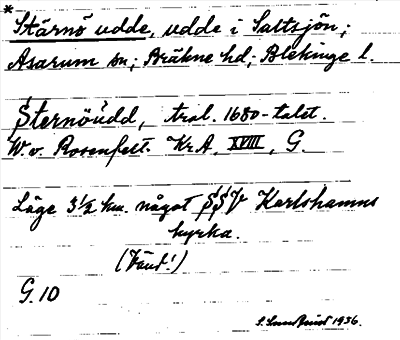 * Stärnö udde, udde i Saltsjön;
Asarum sn; Bräkne hd; Blekinge l.
Sternöüdd, trol. 1680-talet.
W. v. Rosenfelt. Kr.A. XVIII, G.
Läge 3½ km. något SSV Karlshamns
kyrka.
(Vänd!)
G. 10
1936.